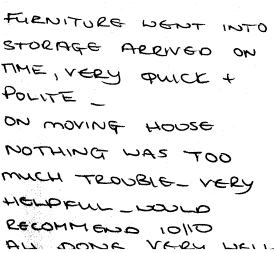 FURNITURE WENT INTO
STORAGE ARRIVED ON
TIME, VERY QUICK +
POLITE -
ON MOVING HOUSE
NOTHING WAS TOO
MUCH TROUBLE - VERY
HELPFUL - WOULD
RECOMMEND 10/10
ALL DONE VERY WELL